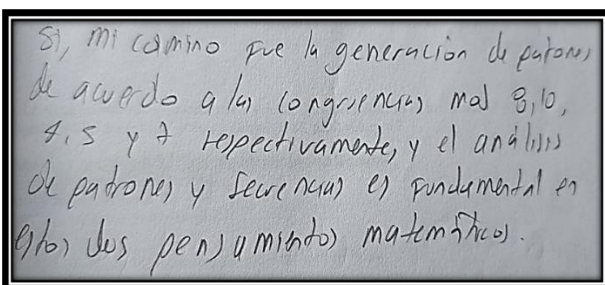 Si, mi camino fue la generación de patrones
de acuerdo a las congruencias mod 8, 10,
4, 5 y 7 respectivamente, y el análisis
de patrones y secuencias es fundamental en
estos dos pensamientos matemáticos.